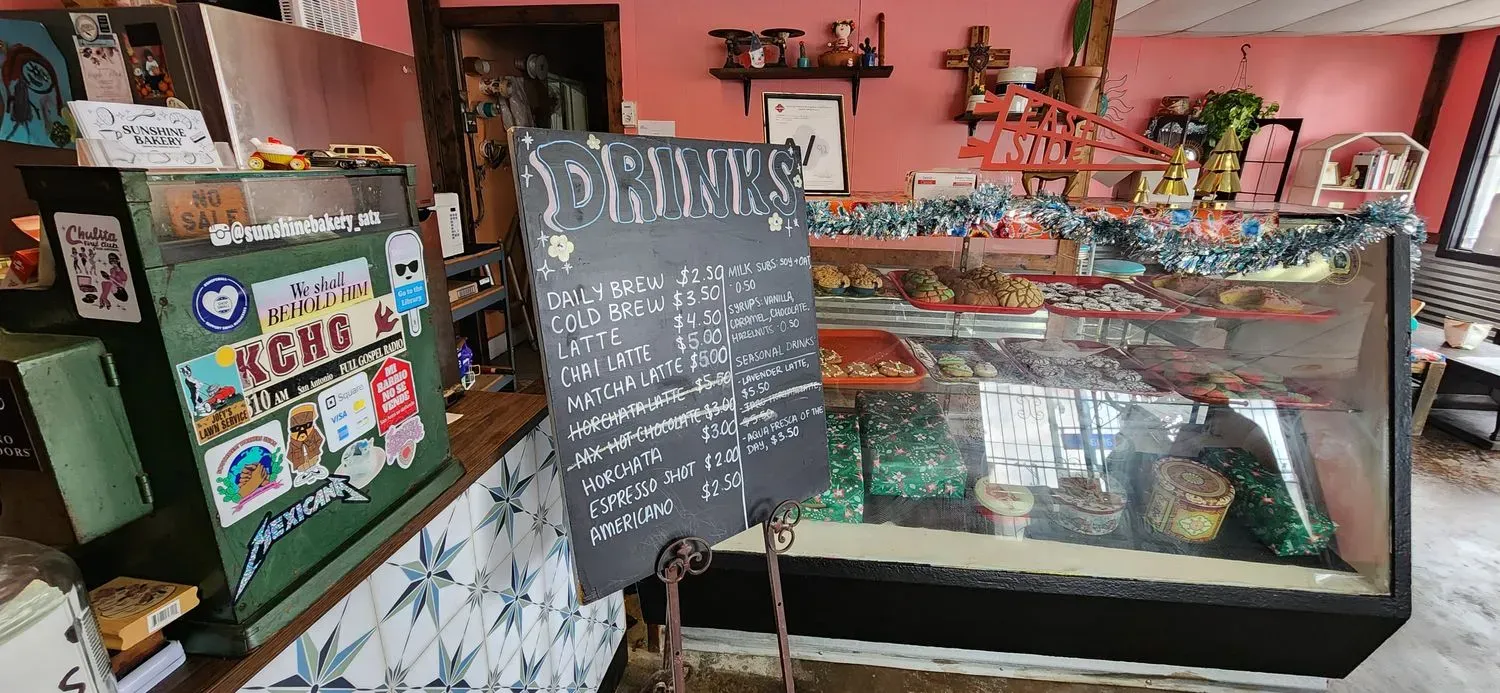 SUNSHINE
BAKERY
NO
SALE
@sunshinebakery_satx
Chulita
vinyl club
We shall
BEHOLD HIM
KCHG
810 AM San Antonio FULL GOSPEL RADIO
Go to the
Library!
Square
VISA
MI
BARRIO
NO SE
VENDE
JOEY'S
LAWN SERVICE
MEXICANA
DRINKS
DAILY BREW $2.50
COLD BREW $3.50
LATTE $4.50
CHAI LATTE $5.00
MATCHA LATTE $5.00
HORCHATA LATTE $5.50
MX HOT CHOCOLATE $3.00
HORCHATA $3.00
ESPRESSO SHOT $2.00
AMERICANO $2.50
MILK SUBS: SOY + OAT
0.50
SYRUPS: VANILLA,
CARAMEL, CHOCOLATE,
HAZELNUTS 0.50
SEASONAL DRINKS
-LAVENDER LATTE,
$5.50
$5.50
-AGUA FRESCA OF THE
DAY, $3.50
EAST
SIDE